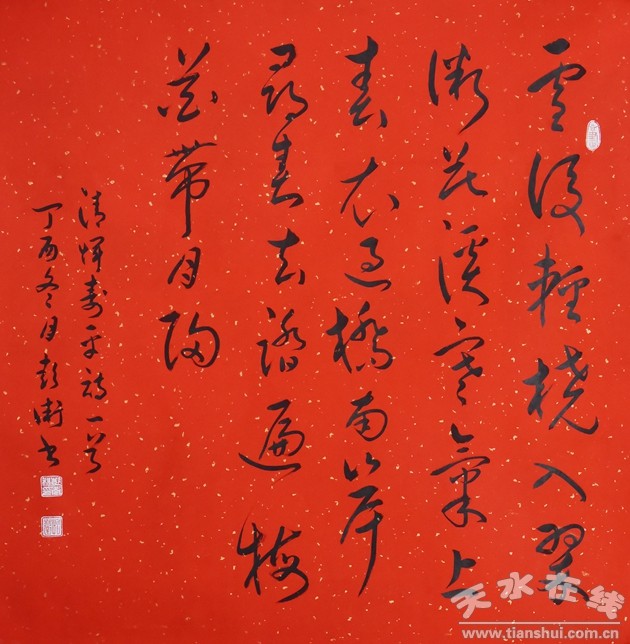 雪後輕橈入翠
微花溪寒氣上
春衣過橋南岸
尋春去踏遍梅
花帶月歸
清惲壽平詩一首
丁酉冬月彭衛书
天水在线
www.tianshui.com.cn